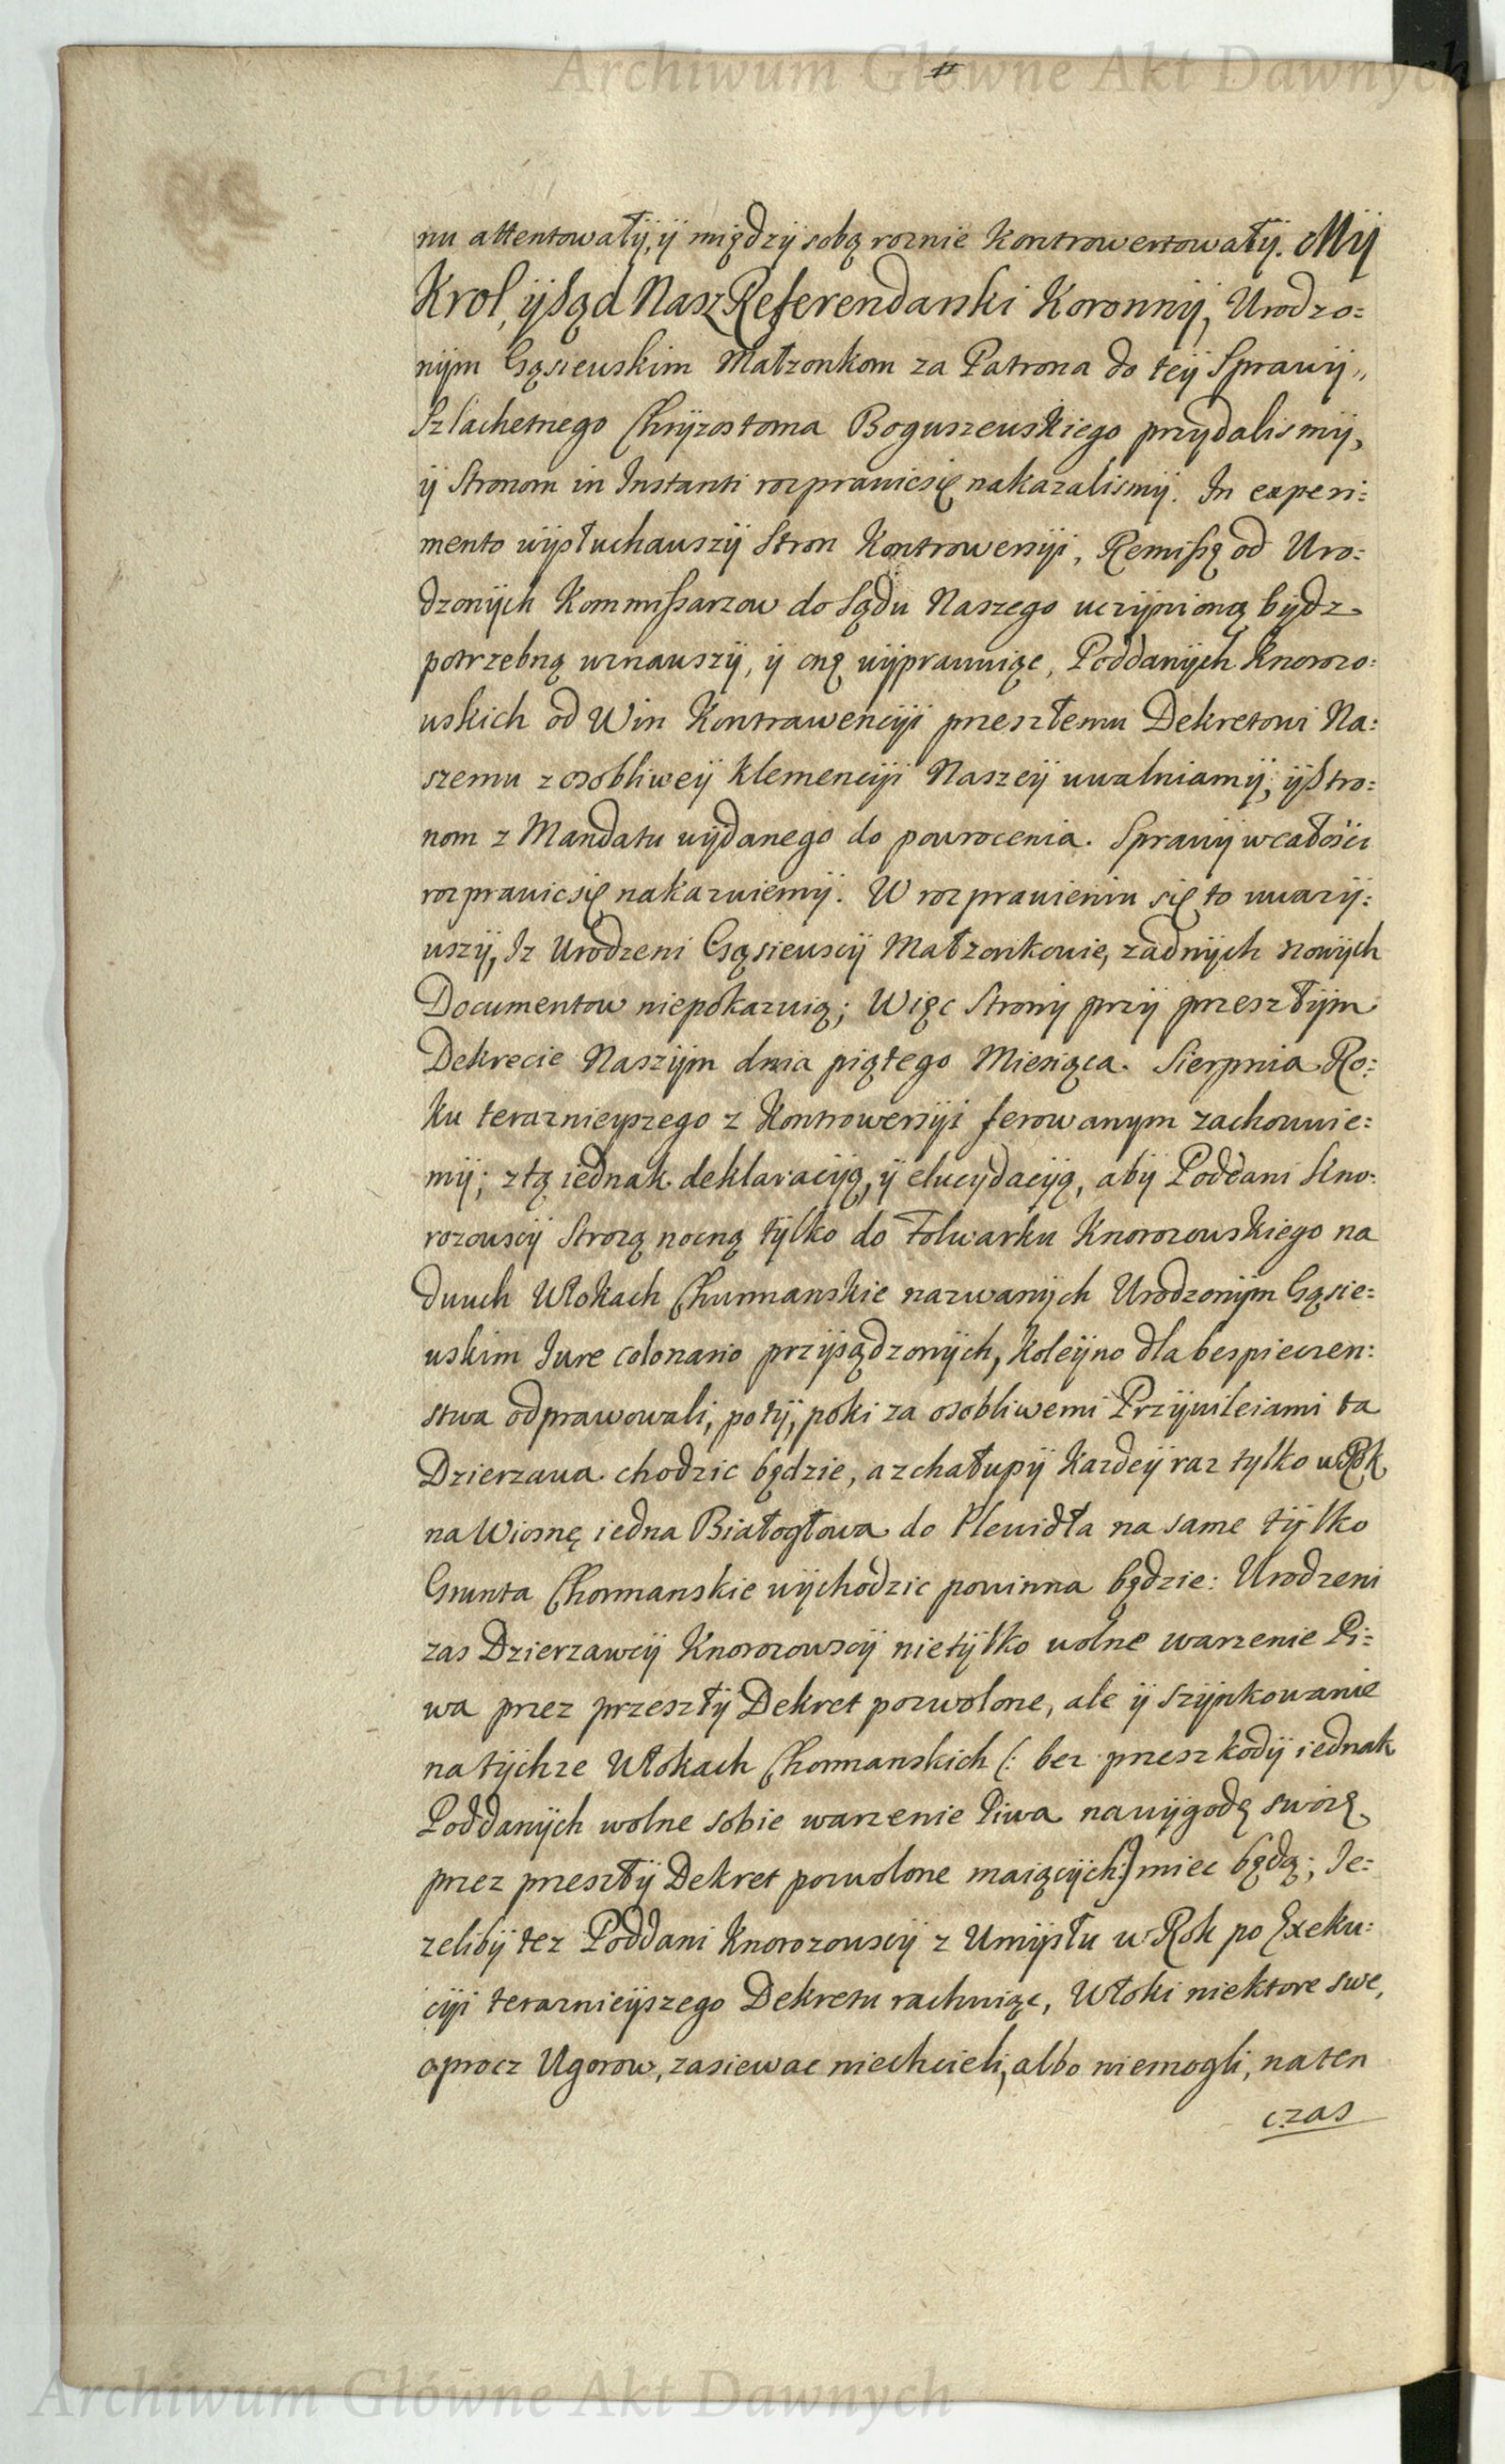 Archiwum Główne Akt Dawnych
nu attentowały, y między sobą roznie kontrowertowały. My
Krol, y Sąd Nasz Referendarski Koronny, Urodzo:
nym Gąsiewskim Małzonkom za Patrona do tey Sprawy,,
Szlachetnego Chryzostoma Boguszewskiego przydalismy,
y Stronom in Instanti rozprawicsię nakazalismy. In experi:
mento wysłuchawszy Stron Kontrowersyi, Remissę od Uro:
dzonych Kommissarzow do Sądu Naszego uczynioną bydz
potrzebną uznawszy, y onę wyprawuiąc, Poddanych Knorozo:
wskich od Win Kontrawencyi przeszłemu Dekretowi Na:
szemu z osobliwey Klemencyi Naszey uwalniamy, y Stro:
nom z Mandatu wydanego do powrocenia. Sprawy wcałości
rozprawicsię nakazuiemy. W rozprawieniu się to uwazy:
wszy, Iz Urodzeni Gąsiewscy Małzonkowie, zadnych nowych
Documentow niepokazuią; Więc Strony przy przeszłym
Dekrecie Naszym dnia piątego Miesiąca. Sierpnia Ro:
ku teraznieyszego z Kontrowersyi ferowanym zachowuie:
my; ztą iednak deklaracyą, y elucydacyą, aby Poddani Kno:
rozowscy Strozą nocną tylko do Folwarku Knorozowskiego na
dwuch Włokach Churmanskie nazwanych Urodzonym Gąsie:
wskim Iure colonario przysądzonych, koleyno dla bespieczen:
stwa odprawowali, poty, poki za osobliwemi Przywileiami ta
Dzierzawa chodzic będzie, a zchałupy kazdey raz tylko w Rok
na Wiosnę iedna Białogłowa do Plewidła na same tylko
Grunta Chormanskie wychodzic powinna będzie: Urodzeni
zas Dzierzawcy Knorozowscy nietylko wolne warzenie Pi:
wa przez przeszły Dekret pozwolone, ale y szynkowanie
na tychze Włokach Chormanskich (: bez przeszkody iednak
Poddanych wolne sobie warzenie Piwa nawygodę swoię
przez przeszły Dekret pozwolone maiących:) miec będą; Ie:
zeliby tez Poddani Knorozowscy z Umysłu w Rok po Exeku:
cyi teraznieyszego Dekretu rachuiąc, Włoki niektore swe,
oprocz Ugorow, zasiewac niechcieli, albo niemogli, naten
czas
Archiwum Główne Akt Dawnych